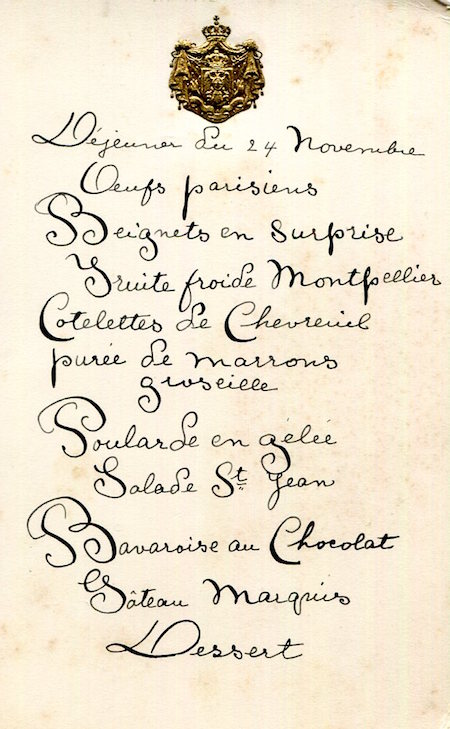 Déjeuner du 24 Novembre
Oeufs parisiens
Beignets en Surprise
Truite froide Montpellier
Cotelettes de Chevreuil
purée de marrons
groseille
Poularde en gélée
Salade St Jean
Bavaroise au Chocolat
Gâteau Marquis
Dessert